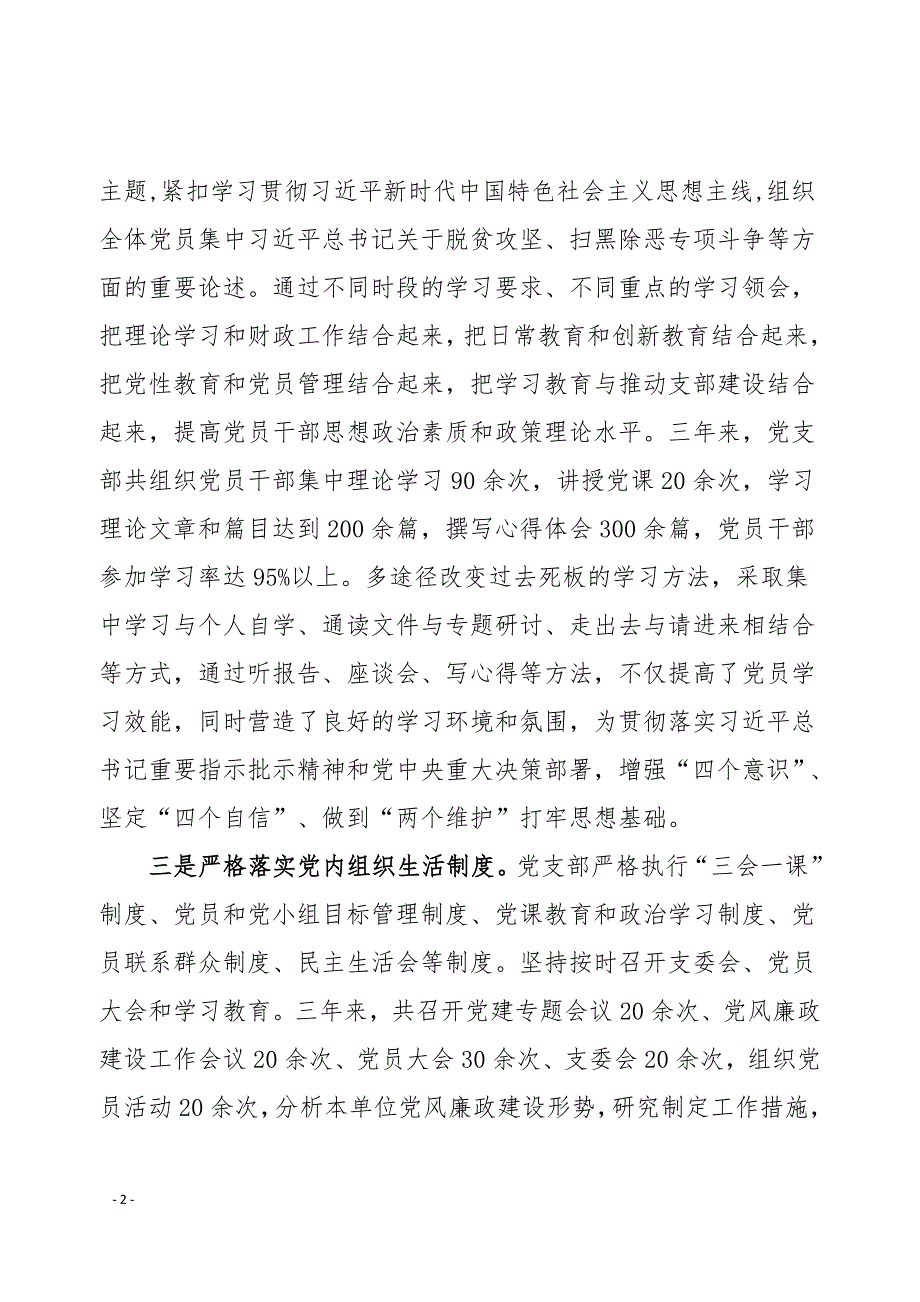 主题,紧扣学习贯彻习近平新时代中国特色社会主义思想主线,组织
全体党员集中习近平总书记关于脱贫攻坚、扫黑除恶专项斗争等方
面的重要论述。通过不同时段的学习要求、不同重点的学习领会，
把理论学习和财政工作结合起来，把日常教育和创新教育结合起来，
把党性教育和党员管理结合起来，把学习教育与推动支部建设结合
起来，提高党员干部思想政治素质和政策理论水平。三年来，党支
部共组织党员干部集中理论学习 90 余次，讲授党课 20 余次，学习
理论文章和篇目达到 200 余篇，撰写心得体会 300 余篇，党员干部
参加学习率达 95%以上。多途径改变过去死板的学习方法，采取集
中学习与个人自学、通读文件与专题研讨、走出去与请进来相结合
等方式，通过听报告、座谈会、写心得等方法，不仅提高了党员学
习效能，同时营造了良好的学习环境和氛围，为贯彻落实习近平总
书记重要指示批示精神和党中央重大决策部署，增强“四个意识”、
坚定“四个自信”、做到“两个维护”打牢思想基础。
三是严格落实党内组织生活制度。党支部严格执行“三会一课”
制度、党员和党小组目标管理制度、党课教育和政治学习制度、党
员联系群众制度、民主生活会等制度。坚持按时召开支委会、党员
大会和学习教育。三年来，共召开党建专题会议 20 余次、党风廉政
建设工作会议 20 余次、党员大会 30 余次、支委会 20 余次，组织党
员活动 20 余次,分析本单位党风廉政建设形势,研究制定工作措施,
- 2 -